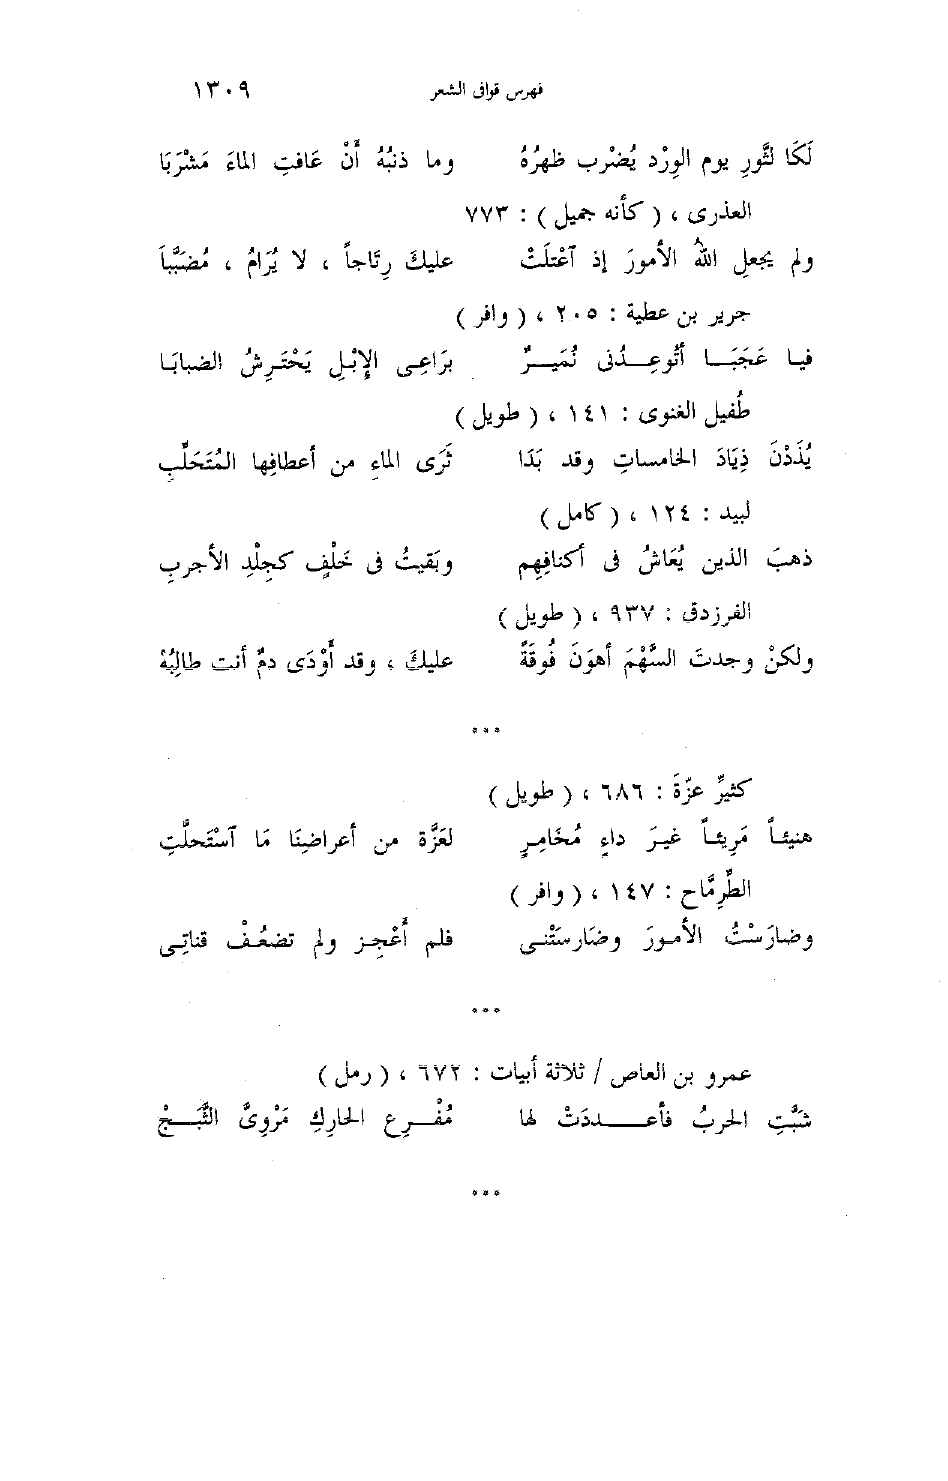 فهرس قوافى الشعر ١٣٠٩
لَكَا لثَّورِ يوم الوِرْد يُضْرب ظهرُهُ وما ذنبُهُ أَنْ عَافتِ الماءَ مَشْرَبَا
العذرى ، ( كأنه جميل ) : ٧٧٣
ولم يجعلِ اللهُ الأمورَ إذ آعْتلَتْ عليكَ رِتَاجاً ، لا يُرَامُ ، مُضَبَّباَ
جرير بن عطية : ٢٠٥ ، ( وافر )
فيا عَجَبَا أتُوعِدُنى نُمَيرٌ بَرَاعِى الإبْلِ يَحْتَرِشُ الضبابَا
طُفيل الغنوى : ١٤١ ، ( طويل )
يُذَدْنَ ذِيَادَ الخامساتِ وقد بَدَا ثَرَى الماءِ من أعطافِها المُتَحَلِّبِ
لبيد : ١٢٤ ، ( كامل )
ذهبَ الذين يُعَاشُ فى أكنافِهِم وبَقيتُ فى خَلْفٍ كجِلْدِ الأجربِ
الفرزدق : ٩٣٧ ، ( طويل )
ولكنْ وجدتَ السَّهْمَ أهوَنَ فُوقَةً عليكَ ، وقد أَوْدَى دمٌ أنت طالبُهْ
***
كثيِّر عزّةَ : ٦٨٦ ، ( طويل )
هنيئاً مَرِيئاً غيرَ داءٍ مُخَامِرٍ لعَزَّة من أعراضِنَا مَا آسْتَحلَّتِ
الطِّرِمَّاح : ١٤٧ ، ( وافر )
وضارَسْتُ الأمورَ وضَارسَتْنى فلم أَعْجِز ولم تضعُفْ قناتِى
***
عمرو بن العاص / ثلاثة أبيات : ٦٧٢ ، ( رمل )
شبَّتِ الحربُ فأعددَتْ لها مُفْرِع الحارِكِ مَرْوِىَّ الثَّبَجْ
***